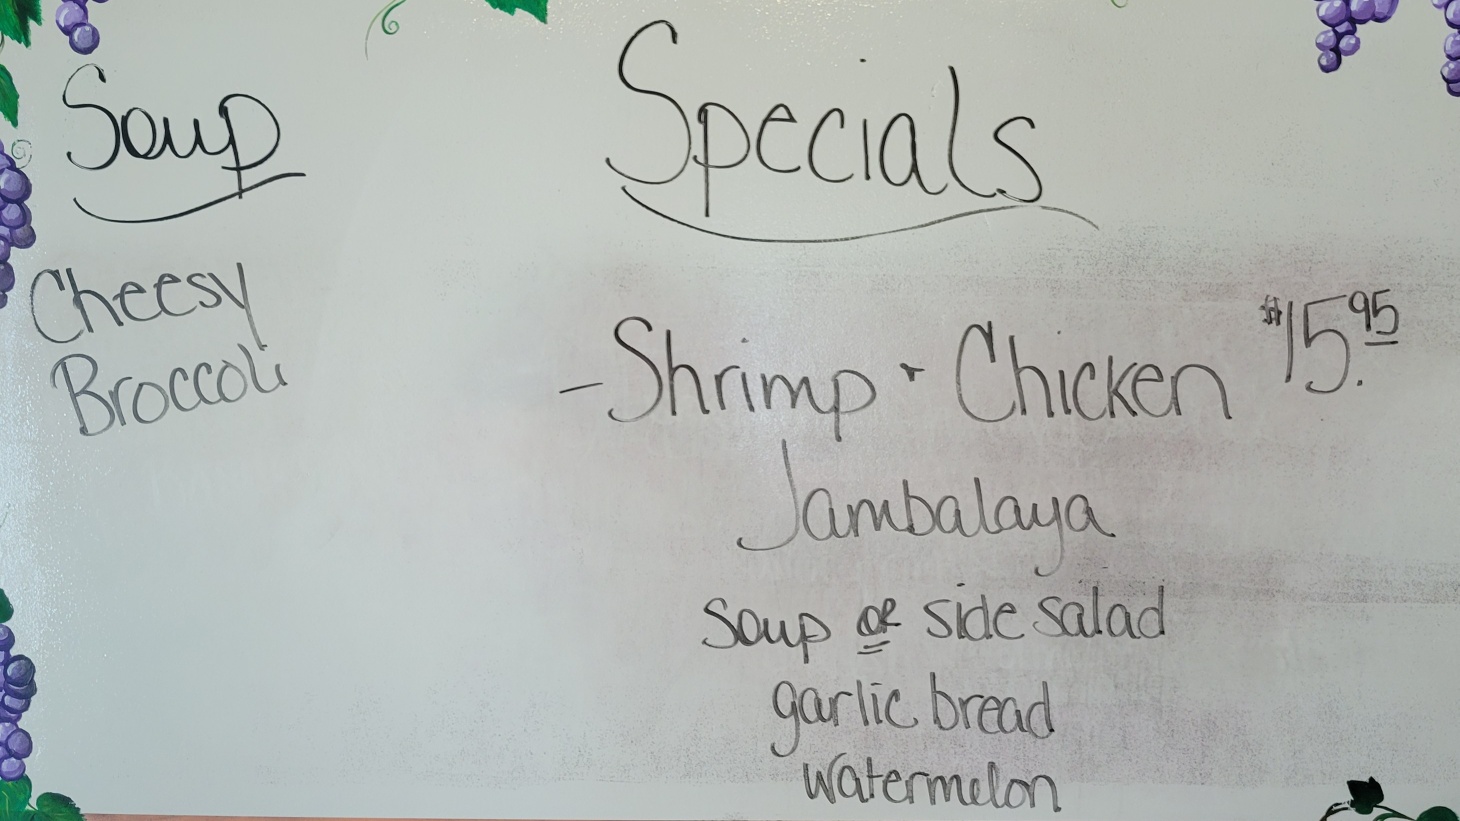 Soup
Cheesy
Broccoli
Specials
- Shrimp + Chicken $15.95
Jambalaya
soup or side salad
garlic bread
watermelon